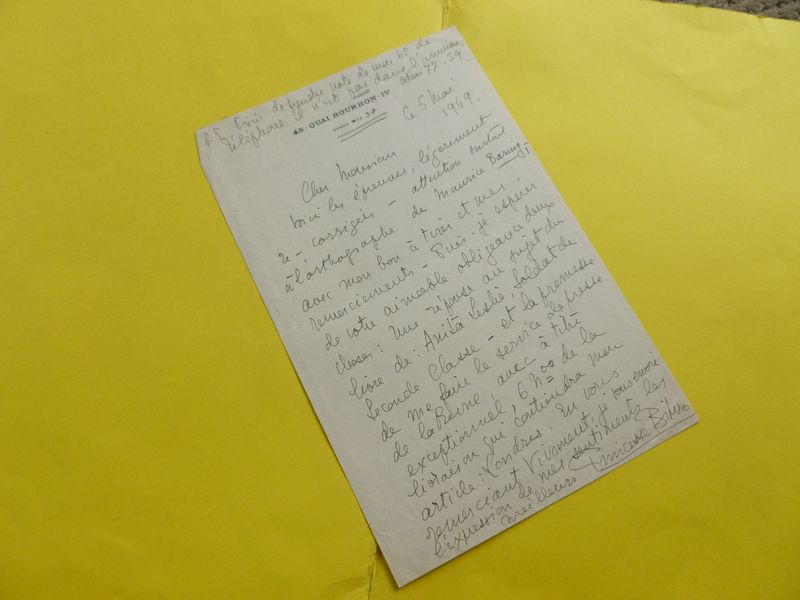 P.S. Prière de prendre note de mon No de
téléphone. Il n'est pas dans l'annuaire.
Odéon 77.39.
45 QUAI BOURBON . IV
39
le 5 Mai
1949.
Cher Monsieur
Voici les épreuves, légèrement
re-corrigées - attention surtout
à l'orthographe de Maurice Baring,
avec mon bon à tirer et mes
remerciements - Puis-je espérer
de votre aimable obligeance deux
choses : une réponse au sujet du
livre de : Anita Leslie, Soldat de
Seconde Classe - et la promesse
de me faire le service de presse
de la Reine avec à titre
exceptionnel, 6 Nos de la
livraison qui contiendra mon
article : Londres. En vous
remerciant vivement, je vous envoie
l'expression de mes sentiments les
meilleurs Princesse Bibesco